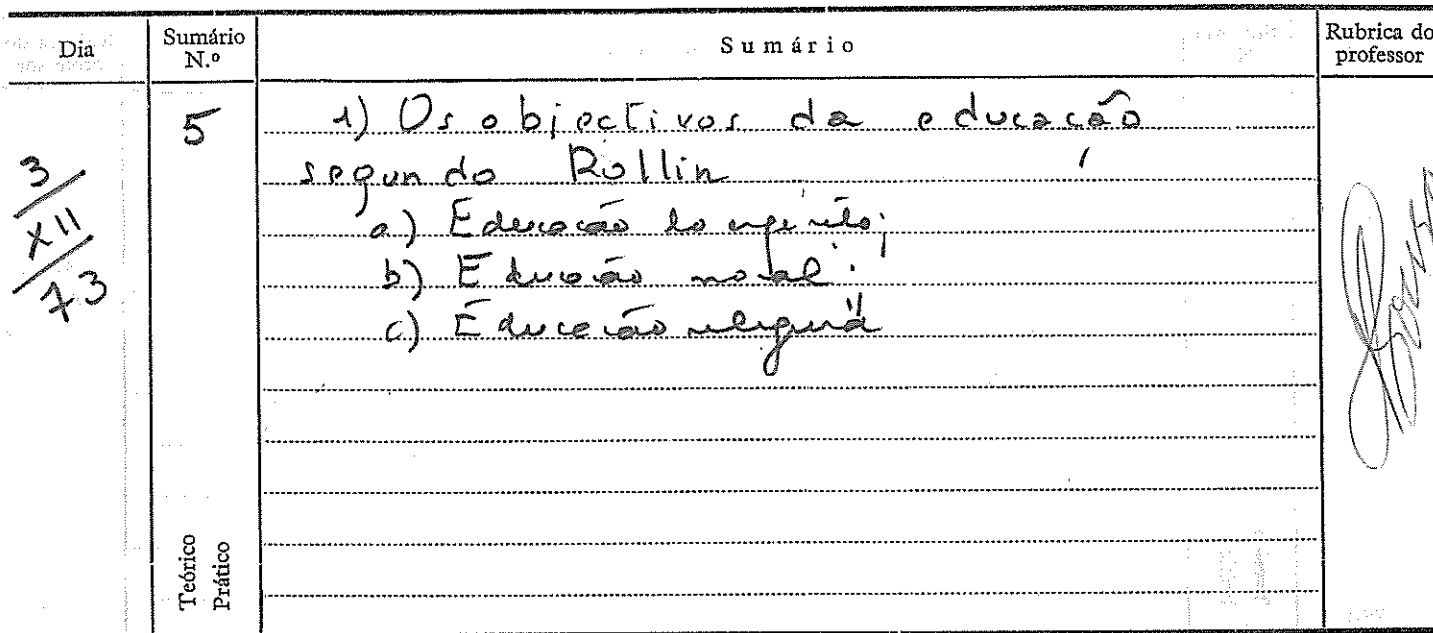 Dia
Sumário N.º
Sumário
Rubrica do professor
3/XII/73
5
1) Os objectivos da educação
segundo Rollin
a) Educação do espírito;
b) Educação moral;
c) Educação religiosa
Teórico
Prático